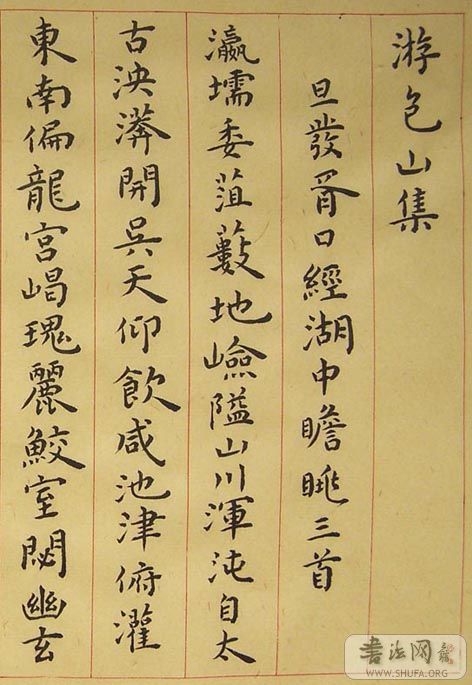 游包山集
旦發胥口經湖中瞻眺三首
瀛壖委菹薮地嶮隘山川渾沌自太
古泱漭開吳天仰飲咸池津俯灌
東南偏龍宮崵瑰麗鮫室閟幽玄
書法网
WWW.SHUFA.ORG